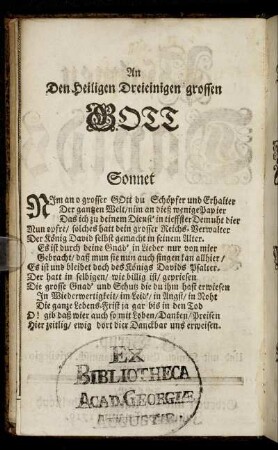 An
Den Heiligen Dreieinigen grossen
GOTT
Sonnet
NIm an o grosser GOtt du Schöpfer und Erhalter
Der gantzen Welt/ nim an diß wenige Papier
Das ich zu deinem Dienst' in tieffster Demuht dier
Nun opfre/ solches hatt dein grosser Reichs-Verwalter
Der König David selbst gemacht in seinem Alter.
Es ist durch deine Gnad' in Lieder nur von mier
Gebracht/ daß mun sie nun auch singen kan allhier/
Es ist und bleibet doch des Königs Davids Psalter.
Der hatt in selbigen/ wie billig ist/ gewiesen
Die grosse Gnad' und Schutz die du ihm hast erwiesen
In Wiederwertigkeit/ im Leid/ in Angst/ in Noht
Die gantze Lebens-Frist ja gar bis in den Tod
O! gib daß wier auch so mit Loben/Danken/Preisen
Hier zeitlig/ ewig dort dier Danckbar uns erweisen.
EX
BIBLIOTHECA
ACAD. GEORGIÆ
AUGUSTÆ